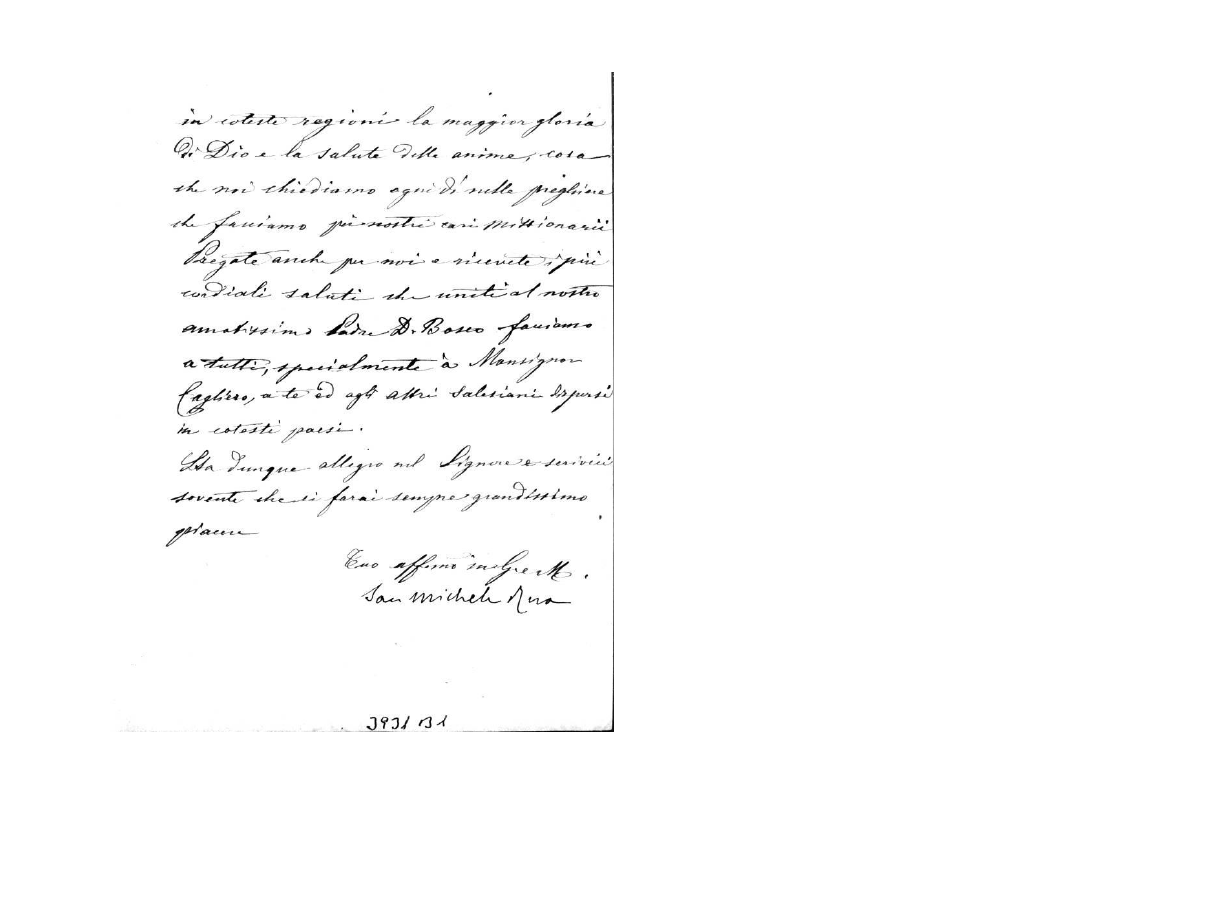 in coteste regioni la maggior gloria
di Dio e la salute delle anime, cosa
che noi chiediamo ogni dì nelle preghiere
che facciamo pei nostri cari Missionarii
Pregate anche per noi e ricevete i più
cordiali saluti che uniti al nostro
amatissimo Padre D. Bosco facciamo
a tutti, specialmente a Monsignor
Cagliero, a te ed agli altri Salesiani dispersi
in cotesti paesi.
Sta dunque allegro nel Signore e scrivici
sovente che ci farai sempre grandissimo
piacere
Tuo affmo in G e M.
Sac Michele Rua
3931 B1